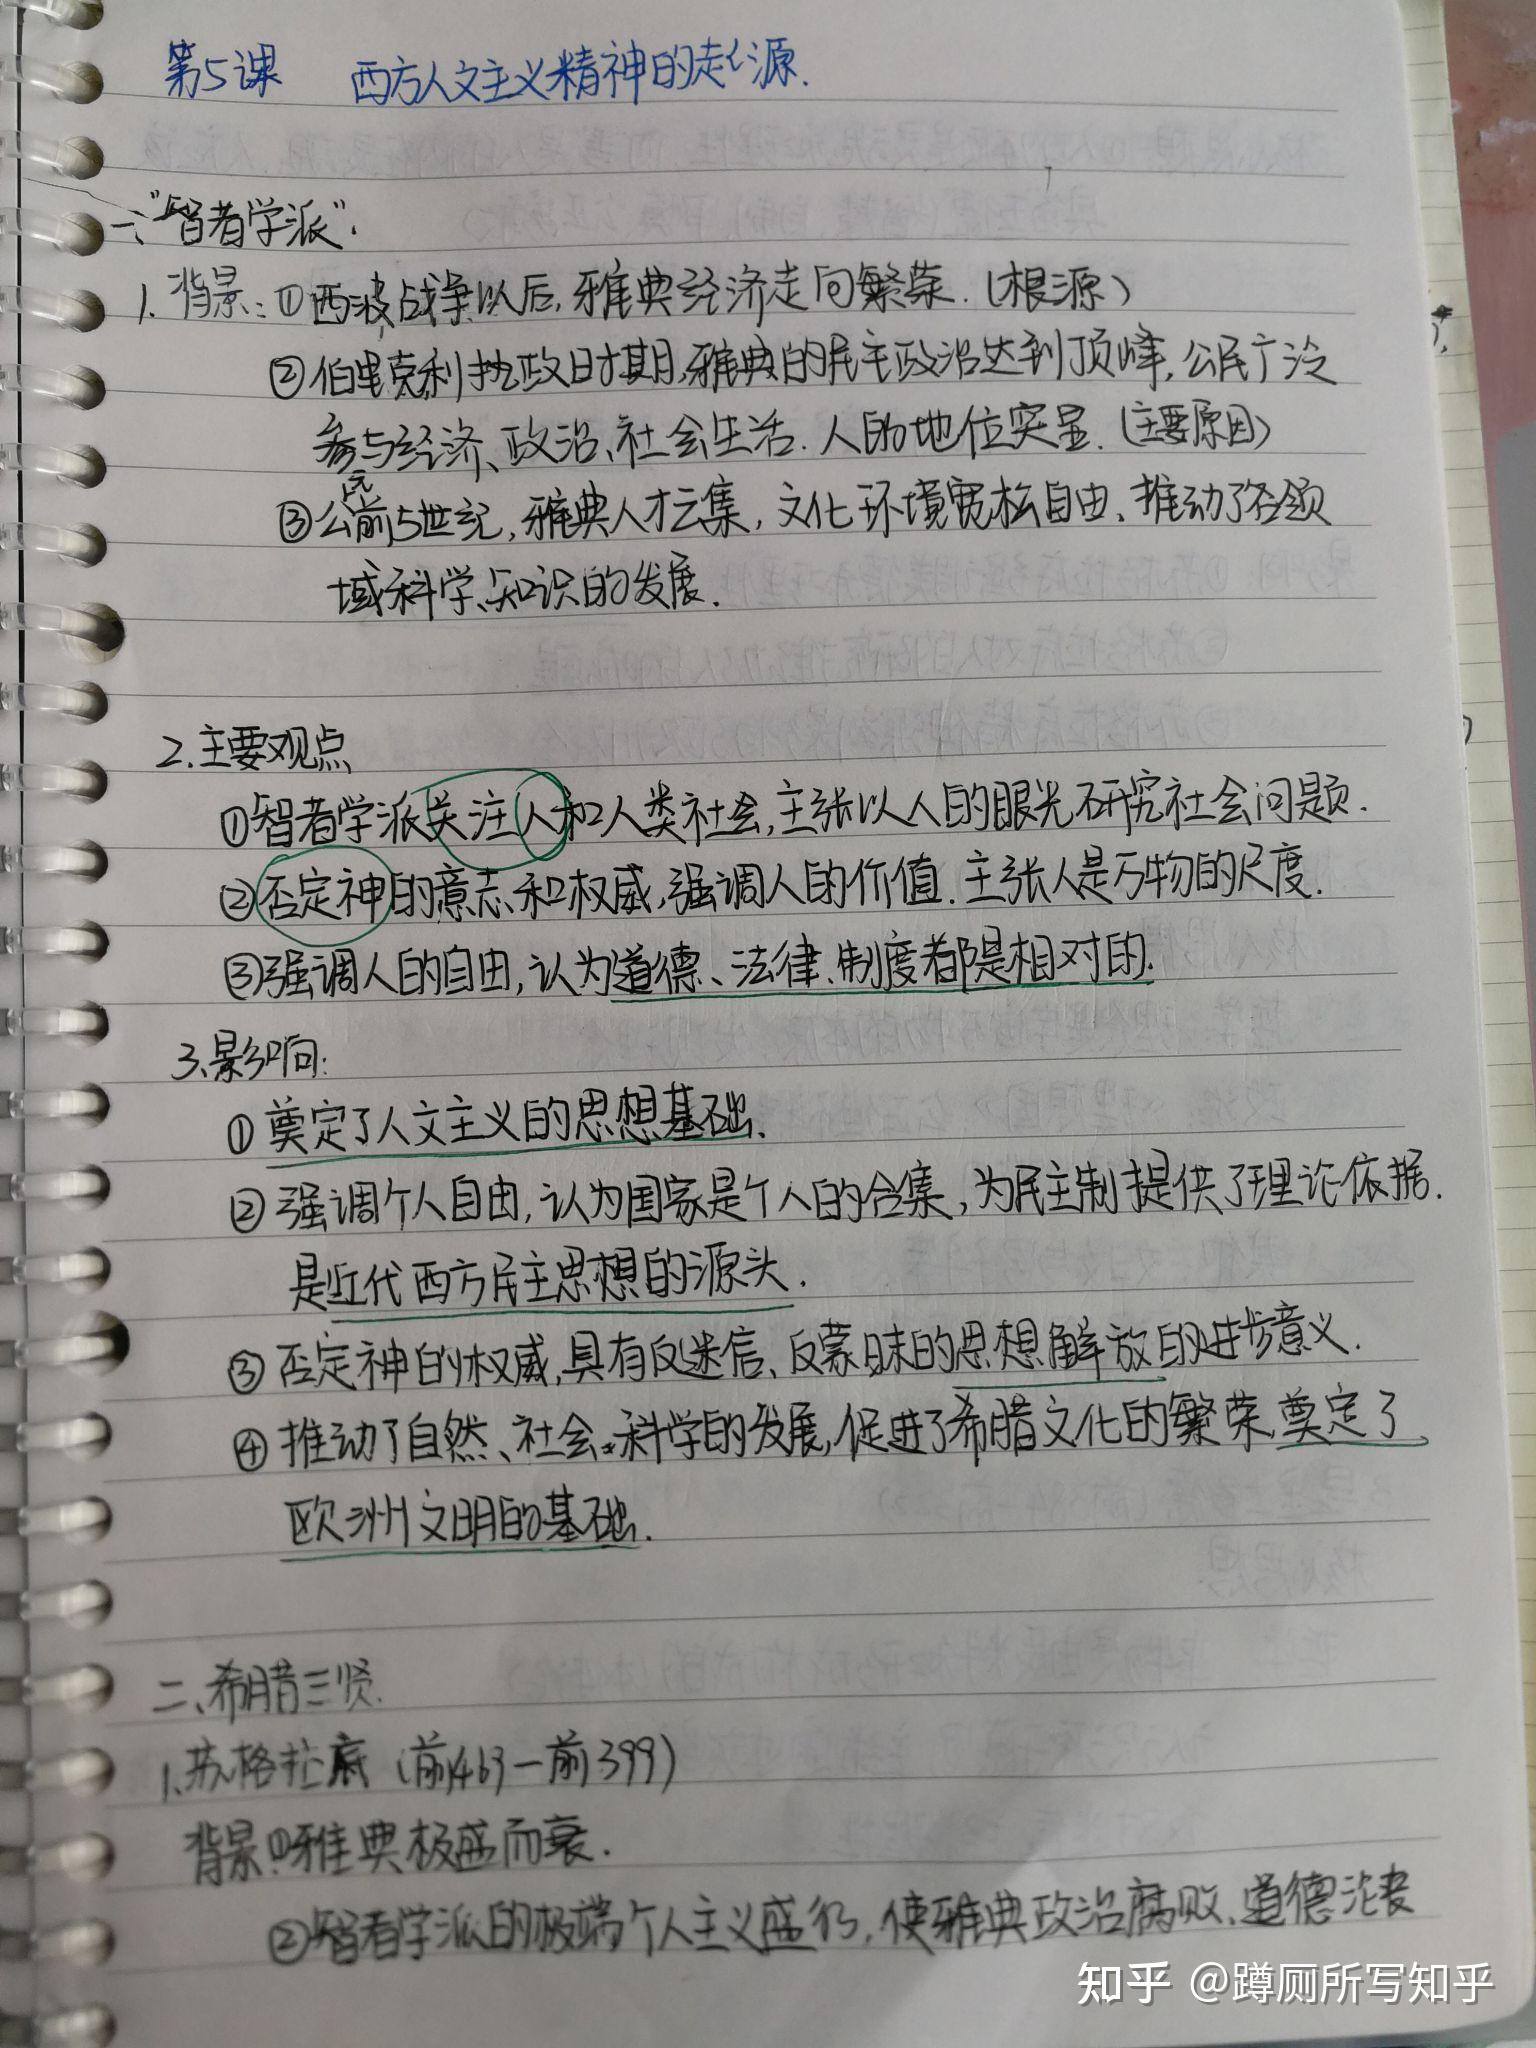 第5课 西方人文主义精神的起源.
一、"智者学派".
1. 背景:①西波战争以后,雅典经济走向繁荣.(根源)
②伯里克利执政时期,雅典的民主政治达到顶峰,公民广泛
参与经济、政治、社会生活.人的地位突显.(主要原因)
③公元前5世纪,雅典人才云集,文化环境宽松自由、推动了各领
域科学、知识的发展.
2.主要观点
①智者学派关注人和人类社会,主张以人的眼光研究社会问题.
②否定神的意志和权威,强调人的价值.主张人是万物的尺度.
③强调人的自由,认为道德、法律、制度都是相对的.
3.影响:
①奠定了人文主义的思想基础.
②强调个人自由,认为国家是个人的合集,为民主制提供了理论依据.
是近代西方民主思想的源头.
③否定神的权威,具有反迷信、反蒙昧的思想解放的进步意义.
④推动了自然、社会科学的发展,促进了希腊文化的繁荣,奠定了
欧洲文明的基础.
二、希腊三贤.
1.苏格拉底(前469—前399)
背景:①雅典极盛而衰.
②智者学派的极端个人主义盛行,使雅典政治腐败、道德沦丧
知乎 @蹲厕所写知乎